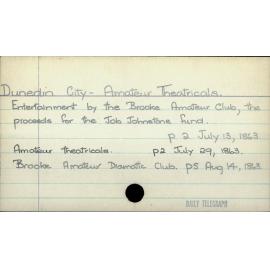 Dunedin City - Amateur Theatricals.
Entertainment by the Brooke Amateur Club, the
proceeds for the Job Johnstone fund.
p 2 July 13, 1863
Amateur theatricals. p2 July 29, 1863.
Brooke Amateur Dramatic Club. p5 Aug 14, 1863
DAILY TELEGRAPH